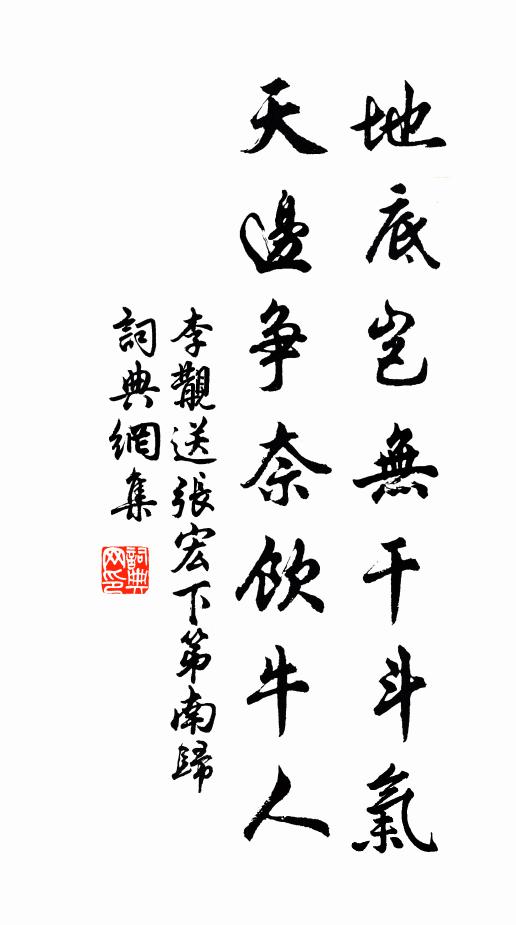 地底豈無干斗氣
天邊争奈飲牛人
李覯送張宏下第南歸
詞典網集
詞典网印